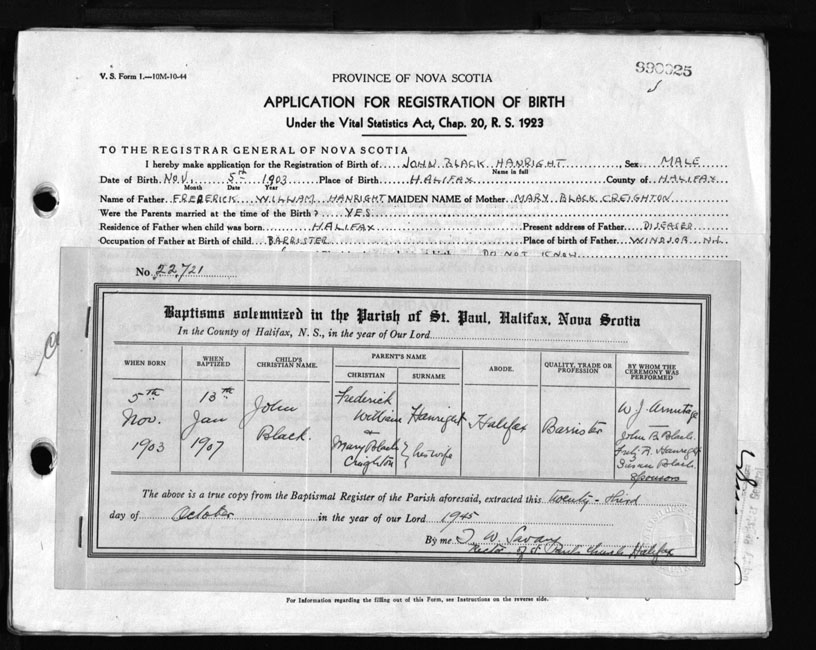 V. S. Form 1.—10M-10-44
PROVINCE OF NOVA SCOTIA
990025
APPLICATION FOR REGISTRATION OF BIRTH
Under the Vital Statistics Act, Chap. 20, R. S. 1923
TO THE REGISTRAR GENERAL OF NOVA SCOTIA
I hereby make application for the Registration of Birth of JOHN BLACK HANRIGHT, Sex MALE
Name in full
Date of Birth NOV. 5th 1903 Place of Birth HALIFAX County of HALIFAX
Month Date Year
Name of Father FREDERICK WILLIAM HANRIGHT MAIDEN NAME of Mother MARY BLACK CREIGHTON
Were the Parents married at the time of the Birth? YES
Residence of Father when child was born HALIFAX Present address of Father DISEASED
Occupation of Father at Birth of child BARRISTER Place of birth of Father WINDSOR N.S.
DO NOT KNOW
No. 22,721
Baptisms solemnized in the Parish of St. Paul, Halifax, Nova Scotia
In the County of Halifax, N. S., in the year of Our Lord
WHEN BORN WHEN BAPTIZED CHILD'S CHRISTIAN NAME. PARENT'S NAME CHRISTIAN SURNAME ABODE. QUALITY, TRADE OR PROFESSION BY WHOM THE CEREMONY WAS PERFORMED
5th Nov. 1903
13th Jan 1907
John Black.
Frederick William & Mary Black Creighton
Hanright } his wife
Halifax
Barrister
W J Armitage
John B. Black
Hanright
Susan Black
Sponsors
The above is a true copy from the Baptismal Register of the Parish aforesaid, extracted this twenty-third
day of October in the year of our Lord 1945
By me T. W. Savary
Rector of St. Paul's Church Halifax
For Information regarding the filling out of this Form, see Instructions on the reverse side.